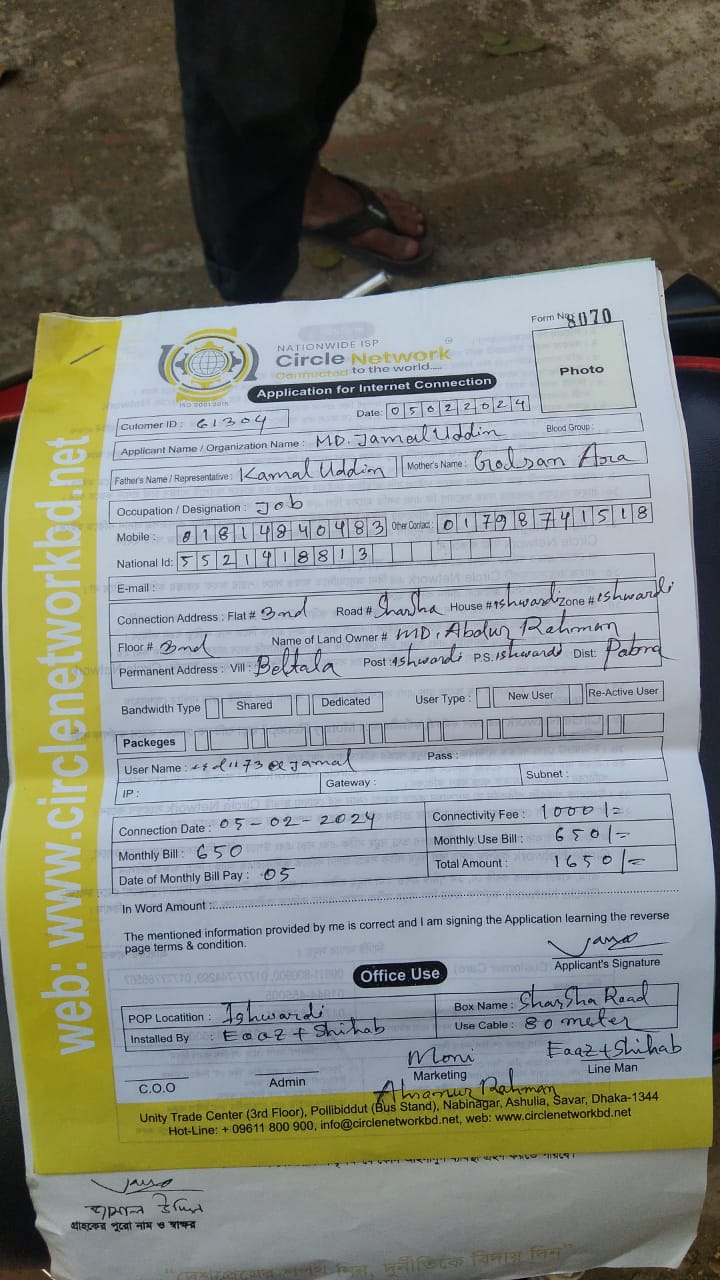 Form No: 8070
NATIONWIDE ISP
Circle Network
Connected to the world.....
ISO 9001:2015
Application for Internet Connection
Photo
Cutomer ID : 61304
Date: 05022024
Applicant Name / Organization Name : MD. Jamal Uddin
Blood Group :
Father's Name / Representative : Kamal Uddin
Mother's Name : Godsan Ara
Occupation / Designation : Job
Mobile : 01814840483 Other Contact : 01798741518
National Id: 5521418813
E-mail :
Connection Address : Flat # 3nd Road # Sharsha House # ishwardi Zone # ishwardi
Floor # 3nd Name of Land Owner # MD. Abdur Rahman
Permanent Address : Vill : Beltala Post : ishwardi P.S. ishwardi Dist: Pabna
Bandwidth Type Shared Dedicated User Type : New User Re-Active User
Packeges
User Name : jamal Pass :
IP : Gateway : Subnet :
Connection Date : 05-02-2024
Connectivity Fee : 1000/=
Monthly Bill : 650
Monthly Use Bill : 650/=
Date of Monthly Bill Pay : 05
Total Amount : 1650/=
In Word Amount :
The mentioned information provided by me is correct and I am signing the Application learning the reverse
page terms & condition.
Applicant's Signature
Office Use
POP Locatition : Ishwardi
Box Name : Sharsha Road
Installed By : Eaaz + Shihab
Use Cable : 80 meter
C.O.O
Admin
Moni
Marketing
Eaaz + Shihab
Line Man
Rahman
Unity Trade Center (3rd Floor), Pollibiddut (Bus Stand), Nabinagar, Ashulia, Savar, Dhaka-1344
Hot-Line: + 09611 800 900, info@circlenetworkbd.net, web: www.circlenetworkbd.net
web: www.circlenetworkbd.net
জামাল উদ্দিন
গ্রাহকের পুরো নাম ও স্বাক্ষর
"দেশপ্রেমের শপথ নিন, দুর্নীতিকে বিদায় দিন"